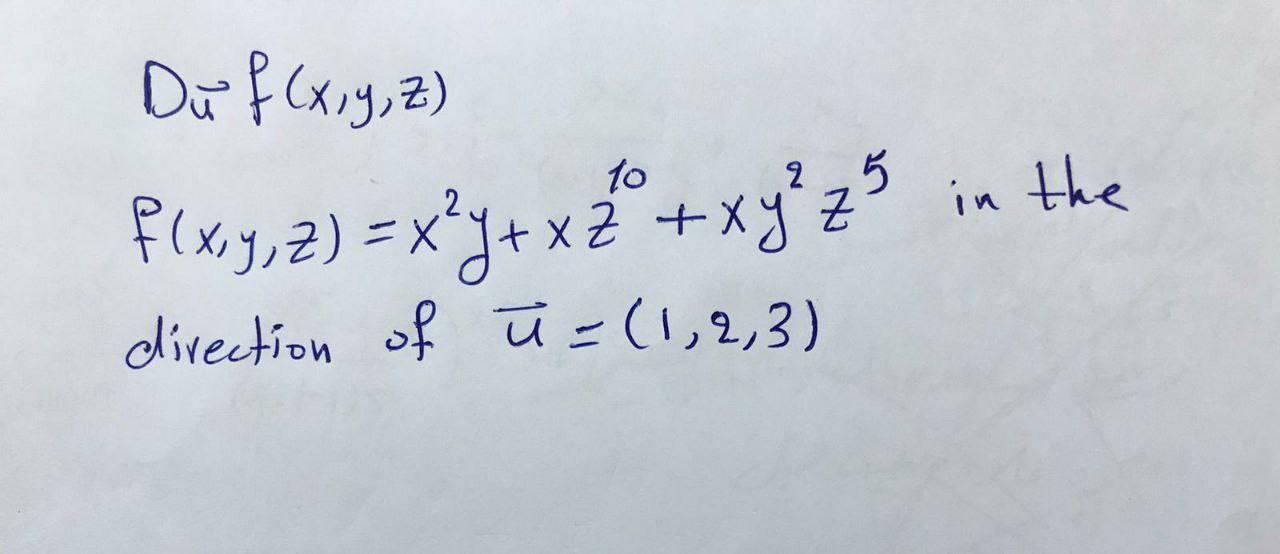 D_u⃗ f(x,y,z)
f(x,y,z) = x²y + xz¹⁰ + xy²z⁵ in the
direction of u⃗ = (1,2,3)